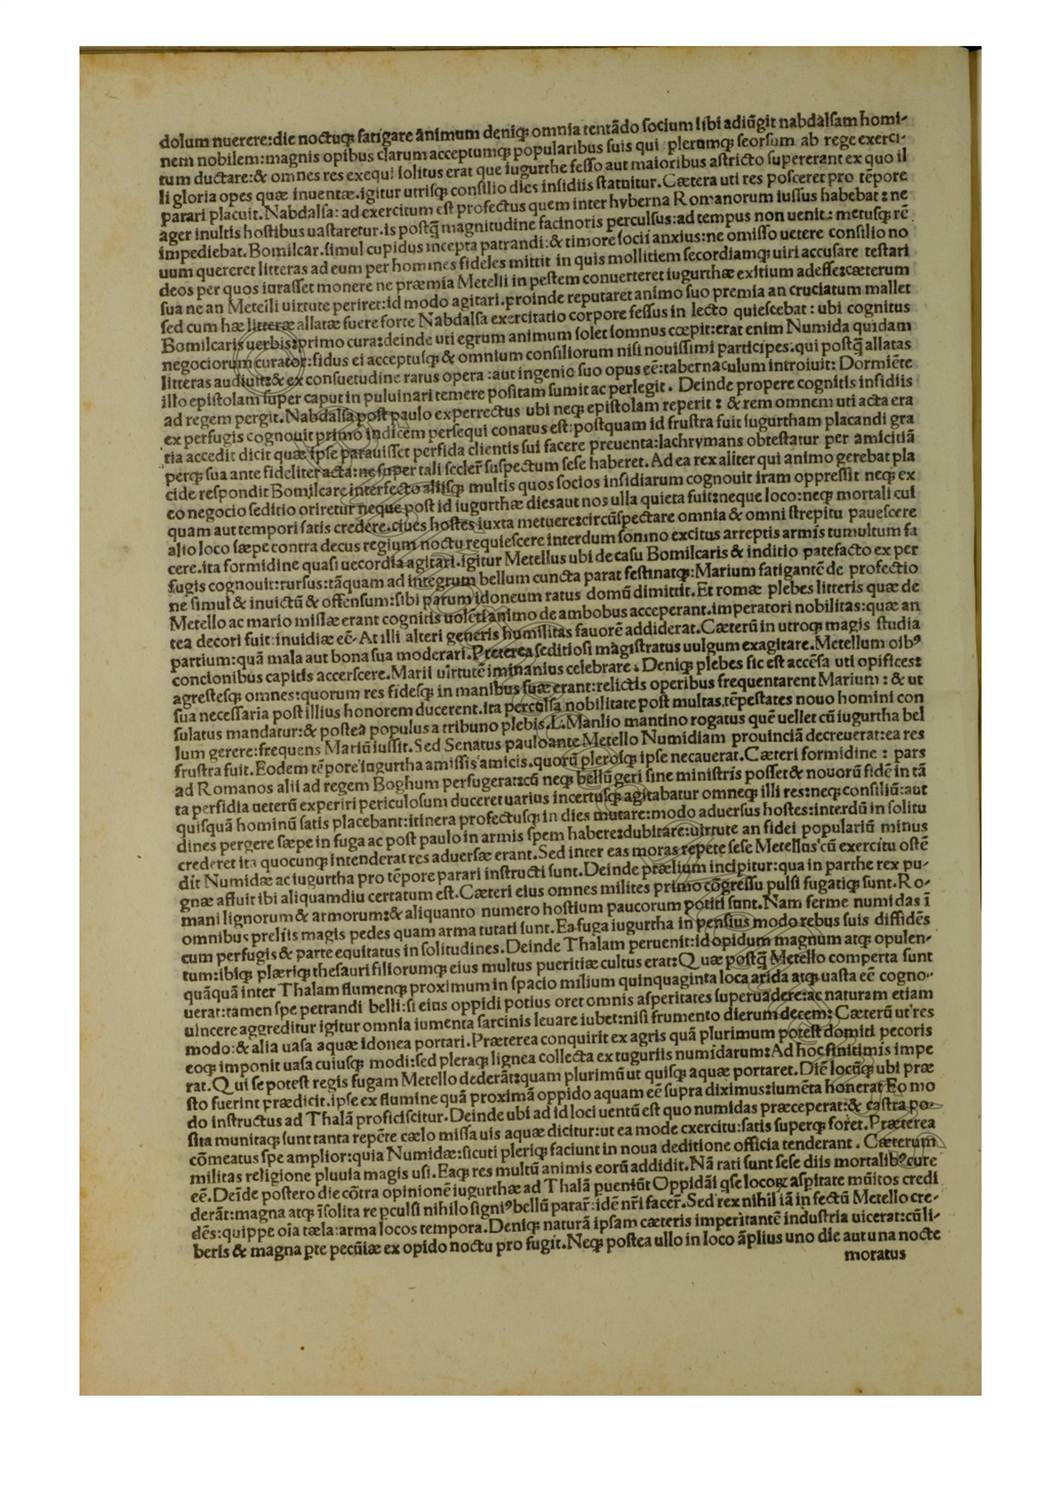 dolum nuerere:die noctuqꝫ fatigare animum deniqꝫ omnia tentādo socium sibi adiūgit nabdalsam homi-
nem nobilem:magnis opibus clarum acceptumqꝫ popularibus suis qui plerumqꝫ seorsum ab rege exerci-
tum ductare:& omnes res exequi solitus erat que iugurthe fesso aut maioribus astricto supererant ex quo il
li gloria opes quæ inuentæ.igitur utrisqꝫ consilio dies insidiis statuitur.Cætera uti res posceret pro tēpore
parari placuit.Nabdalsa:ad exercitum est profectus quem inter hyberna Romanorum iussus habebat:ne
ager inultis hostibus uastaretur.is postꝗ magnitudine facinoris perculsus:ad tempus non uenit:metusqꝫ rē
impediebat.Bomilcar.simul cupidus incepta patrandi:& timore socii anxius:ne omisso uetere consilio no
uum quereret litteras ad eum per homines fideles mittit in quis mollitiem secordiamqꝫ uiri accusare testari
deos per quos iurasset monere ne præmia Metelli in pestem conuerteret iugurthæ exitium adesse:cæterum
sua ne an Metelli uirtute periret:id modo agitari.proinde reputaret animo suo premia an cruciatum mallet
sed cum hæ litteræ allatæ fuere forte Nabdalsa exercitatio corpore fessus in lecto quiescebat:ubi cognitus
Bomilcaris uerbis:primo cura:deinde uti egrum animum solet somnus cœpit:erat enim Numida quidam
negociorum curator:fidus ei acceptusqꝫ & omnium consiliorum nisi nouissimi participes.qui postꝗ allatas
litteras audiuit:& ex consuetudine ratus opera:aut ingenio suo opus eē:tabernaculum introiuit:Dormiēte
illo epistolam super caput in puluinari temere positam sumit ac perlegit. Deinde propere cognitis insidiis
ad regem pergit.Nabdalsa post paulo experrectus ubi neqꝫ epistolam reperit:& rem omnem uti acta era
ex perfugis cognouit primo indicem persequi conatus est:postquam id frustra fuit iugurtham placandi gra
tia accedit dicit quæ ipse parauisset perfida clientis sui facere preuenta:lachrymans obtestatur per amicitiā
perqꝫ sua ante fideliter acta:ne super tali sceler̄ suspectum sese haberet.Ad ea rex aliter qui animo gerebat pla
cide respondit Bomilcare interfecto aliisqꝫ multis quos socios insidiarum cognouit iram oppressit neqꝫ ex
eo negocio seditio oriretur neque post id iugurthæ dies aut nos ulla quieta fuit:neque loco:neqꝫ mortali cui
quam aut tempori satis credere.ciues hostes iuxta metuere:circūspectare omnia & omni strepitu pauescere
alio loco sæpe contra decus regium noctu requiescere interdum somno excitus arreptis armis tumultum fa
cere.ita formidine quasi uecordia agitari.igitur Metellus ubi de casu Bomilcaris & inditio patefacto ex per
fugis cognouit:rursus:tāquam ad integrum bellum cuncta parat festinatqꝫ:Marium fatigantē de profectio
ne simul & inuictū & offensum:sibi parum idoneum ratus domū dimittit.Et romæ plebes litteris quæ de
Metello ac mario missæ erant cognitis uolēti animo de ambobus acceperant.imperatori nobilitas:quæ an
tea decori fuit:inuidiæ eē.At illi alteri generis humilitas fauorē addiderat.Cæterū in utroqꝫ magis studia
partium:quā mala aut bona sua moderari.Preterea seditiosi magistratus uulgum exagitare.Metellum oibꝰ
concionibus capitis accerscere.Marii uirtutē iminanius celebrare.Deniqꝫ plebes sic est accēsa uti opifices:
agrestesqꝫ omnes:quorum res fidesqꝫ in manibus suæ erant:relictis operibus frequentarent Marium:& ut
sua necessaria post illius honorem ducerent.ita perculsa nobilitate post multas tēpestates nouo homini con
sulatus mandatur:& postea populus a tribuno plebis.L.Manlio mantino rogatus quē uellet cū iugurtha bel
lum gerere:frequens Mariū iussit.Sed Senatus pauloante Metello Numidiam prouinciā decreuerat:ea res
frustra fuit.Eodem tēpore iugurtha amissis amicis.quorū plerosqꝫ ipse necauerat.Cæteri formidine: pars
ad Romanos alii ad regem Boghum perfugerat:cū neqꝫ bellū geri sine ministris posset & nouorū fidē in tā
ta perfidia ueterū experiri periculosum duceret uarius incertusqꝫ agitabatur omneqꝫ illi res:neqꝫ consiliū:aut
quisquā hominū satis placebant:itinera profectusqꝫ in dies mutare:modo aduersus hostes:interdū in solitu
dines pergere sæpe in fuga ac post paulo in armis spem habere:dubitare:uirtute an fidei populariū minus
crederet ita quocunqꝫ intenderat res aduersæ erant.Sed inter eas moras repēte sese Metellus cū exercitu ostē
dit Numidæ ac iugurtha pro tēpore parari instructi sunt.Deinde prælium incipitur:qua in parthe rex pu-
gnæ affuit ibi aliquamdiu certatum est.Cæteri eius omnes milites primo cōgressu pulsi fugatiqꝫ sunt.Ro-
mani lignorum & armorum:& aliquanto numero hostium paucorum potiti sunt.Nam ferme numidas ī
omnibus preliis magis pedes quam arma tutati sunt.Ea fuga iugurtha in pensius modo rebus suis diffidēs
cum perfugis & parte equitatus in solitudines.Deinde Thalam peruenit:id opidum magnum atqꝫ opulen-
tum:ibiqꝫ plæriqꝫ thesauri filiorumqꝫ eius multus pueritiæ cultus erat:Quæ postꝗ Metello comperta sunt
quāquā inter Thalam flumenqꝫ proximum in spacio milium quinquaginta loca arida atqꝫ uasta eē cogno-
uerat:tamen spe petrandi belli:si eius oppidi potius oret omnis asperitates superuadere:ac naturam etiam
uincere aggreditur igitur omnia iumenta sarcinis leuare iubet:nisi frumento dierum decem:Cæterū ut res
modo:& alia uasa aquæ idonea portari.Præterea conquirit ex agris quā plurimum potest domiti pecoris
eoqꝫ imponit uasa cuiusqꝫ modi:sed pleraqꝫ lignea collecta ex tuguriis numidarum:Ad hoc finitimis impe
rat.Qui se potest regis fugam Metello dederāt:quam plurimū ut quisqꝫ aquæ portaret.Diē locūqꝫ ubi præ
sto fuerint prædicit.ipse ex flumine quā proximā oppido aquam eē supra diximus:iumēta honerat Eo mo
do instructus ad Thalā proficiscitur.Deinde ubi ad id loci uentū est quo numidas præceperat:& castra po-
sita munitaqꝫ sunt tanta repēte cælo missa uis aquæ dicitur:ut ea mode exercitu:satis superqꝫ foret.Præterea
cōmeatus spe amplior:quia Numidæ:sicuti pleriqꝫ faciunt in noua deditione officia tenderant. Cæterum
militas religione pluuia magis usi.Eaqꝫ res multū animis eorū addidit.Nā rati sunt sese diis mortalibꝰ cure
eē.Deīde postero die cōtra opinionē iugurthæ ad Thalā pueniūt Oppidāi qse locoꝝ aspitate mūitos credi
derāt:magna atqꝫ īsolita re pculsi nihilo signiꝰ bellū parar̄:idē nr̄i facer̄.Sed rex nihil iā in fectū Metello cre-
dēs:quippe oīa tæla:arma locos tempora.Deniqꝫ naturā ipsam cæteris imperitantē industria uicerat:cū li-
beris & magna pte pecūiæ ex opido noctu pro fugit.Neqꝫ postea ullo in loco āplius uno die aut una nocte
moratus